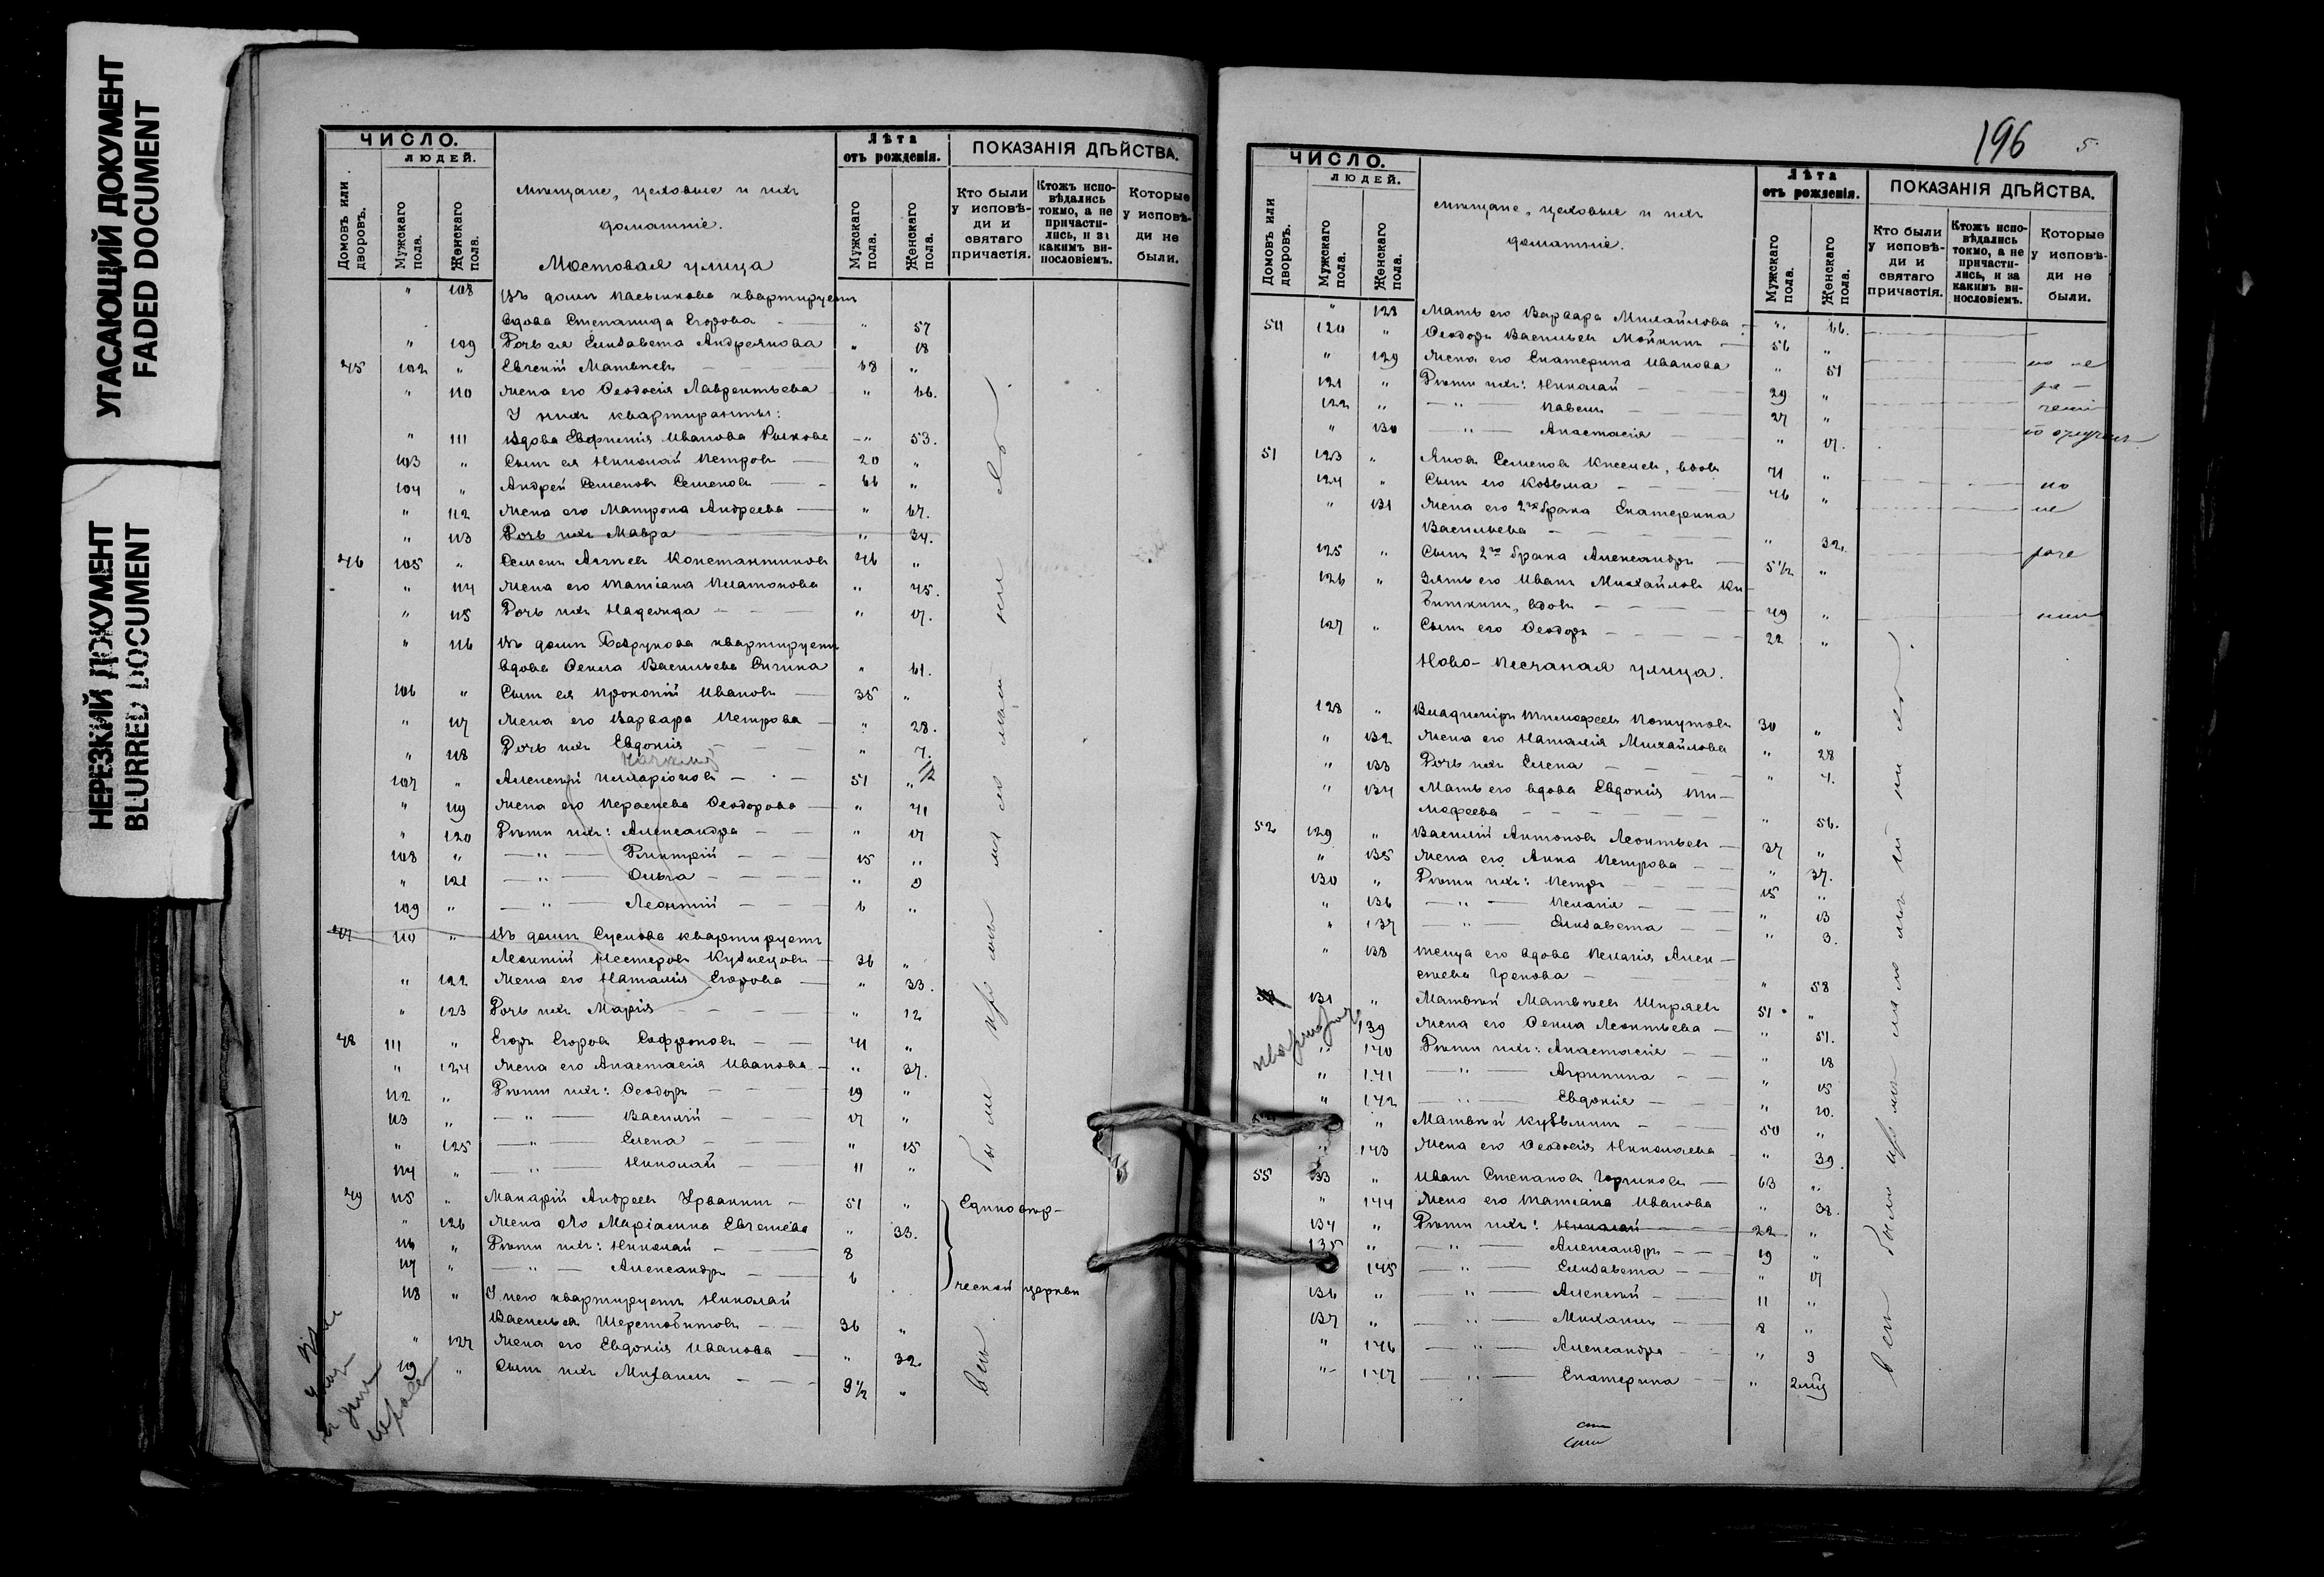 УГАСАЮЩИЙ ДОКУМЕНТ
FADED DOCUMENT
НЕРЕЗКИЙ ДОКУМЕНТ
BLURRED DOCUMENT
ЧИСЛО.
ЛЮДЕЙ.
Домовъ или дворовъ.
Мужскаго пола.
Женскаго пола.
Мѣщане, цеховые и ихъ
домашніе.
Мостовая улица
Лѣта
отъ рожденія.
Мужскаго пола.
Женскаго пола.
ПОКАЗАНІЯ ДѢЙСТВА.
Кто были у исповѣди и святаго причастія.
Ктожъ исповѣдались токмо, а не причастились, и за какимъ винословіемъ.
Которые у исповѣди не были.
" 108 Въ домѣ Пасынкова квартируетъ
вдова Степанида Егорова — " 57
" 109 Дочь ея Елизавета Андреянова " 18
45 102 " Евгеній Матвѣевъ 68 "
" 110 Жена его Ѳеодосія Лаврентьева " 66.
У нихъ квартиранты:
" 111 Вдова Евфимія Иванова " 53.
103 " Сынъ ея Николай Петровъ — 20 "
104 " Андрей Семеновъ Семеновъ — 66 "
" 112 Жена его Матрона Андреева — " 67.
" 113 Дочь ихъ Мавра " 34.
46 105 " Семенъ Константиновъ 46 "
" 114 Жена его Татіана Платонова " 45.
" 115 Дочь ихъ Надежда " 17.
" 116 Въ домѣ Безрукова квартируетъ
вдова Ѳекла Васильева " 61.
106 " Сынъ ея Прокопій Ивановъ — 35 "
" 117 Жена его Варвара Петрова — " 28.
" 118 Дочь ихъ Евдокія " 7.
107 " Алексѣй Иларіоновъ — 51 " 1/2
" 119 Жена его Параскева Ѳеодорова — " 41
" 120 Дѣти ихъ: Александра — " 17
108 " — " — Димитрій — 15 "
" 121 — " — Ольга — " 9
109 " — " — Леонтій — 6 "
47 110 " Въ домѣ Суслова квартируетъ
Леонтій Нестеровъ Кузнецовъ — 36 "
" 122 Жена его Наталія Егорова — " 33.
" 123 Дочь ихъ Марія — " 12
48 111 " Егоръ Егоровъ Софроновъ — 41 "
" 124 Жена его Анастасія Иванова — " 37.
112 " Дѣти ихъ: Ѳеодоръ — 19 "
113 " — " — Василій — 17 "
" 125 — " — Елена — " 15
114 " — " — Николай — 11 "
49 115 " Макарій Андреевъ Урванинъ — 51 "
" 126 Жена его Маріамна Евгеніева " 33.
116 " Дѣти ихъ: Николай — 8
117 " — " — Александръ — 6
Единовѣр-
ческой церкви
118 " У него квартируетъ Николай
Васильевъ Шерстобитовъ — 36 "
" 127 Жена его Евдокія Иванова — " 32.
119 " Сынъ ихъ Михаилъ — 9 1/2 "
196
5
ЧИСЛО.
ЛЮДЕЙ.
Домовъ или дворовъ.
Мужскаго пола.
Женскаго пола.
Мѣщане, цеховые и ихъ
домашніе.
Лѣта
отъ рожденія.
Мужскаго пола.
Женскаго пола.
ПОКАЗАНІЯ ДѢЙСТВА.
Кто были у исповѣди и святаго причастія.
Ктожъ исповѣдались токмо, а не причастились, и за какимъ винословіемъ.
Которые у исповѣди не были.
" 128 Мать его Варвара Михайлова — " 66.
50 120 " Ѳеодоръ Васильевъ Мойкинъ — 56 "
" 129 Жена его Екатерина Иванова " 51 по не
121 " Дѣти ихъ: Николай — 29 " ра-
122 " — " — Павелъ — 27 "
" 130 — " — Анастасія — " 17.
51 123 " Яковъ Семеновъ Киселевъ, вдовъ 71 "
124 " Сынъ его Козьма — 46 " по
" 131 Жена его 2го брака Екатерина не
Васильева — " 32.
125 " Сынъ 2го брака Александръ — 5 1/2 "
126 " Зять его Иванъ Михайловъ Ки-
биткинъ, вдовъ — 49 "
127 " Сынъ его Ѳеодоръ — 22 "
Ново-Песчаная улица.
128 " Владиміръ Тимоѳеевъ 30 "
" 132 Жена его Наталія Михайлова " 28
" 133 Дочь ихъ Елена — " 4.
" 134 Мать его вдова Евдокія Ти-
моѳеева — " 56.
52 129 " Василій Антоновъ Леонтьевъ — 37 "
" 135 Жена его Анна Петрова — " 37.
130 " Дѣти ихъ: Петръ — 15 "
" 136 — " — Пелагія — " 13
" 137 — " — Елизавета — " 3.
" 138 Теща его вдова Пелагія Алек-
сѣева Грекова — " 58
53 131 " Матвѣй Матвѣевъ Ширяевъ 51 "
" 139 Жена его Ѳекла Леонтьева — " 51.
" 140 Дѣти ихъ: Анастасія — " 18
" 141 — " — Агрипина — " 15
" 142 — " — Евдокія — " 10.
" Матвѣй Кузьминъ — 50 "
" 143 Жена его Ѳеодосія Николаева " 39.
55 133 " Иванъ Степановъ Горшковъ — 63 "
" 144 Жена его Татіана Иванова " 38.
134 " Дѣти ихъ: Николай — 22 "
135 " — " — Александръ — 19 "
" 145 — " — Елизавета — " 17
136 " — " — Алексѣй — 11 "
137 " — " — Михаилъ — 8 "
" 146 — " — Александра " 9
" 147 — " — Екатерина — "